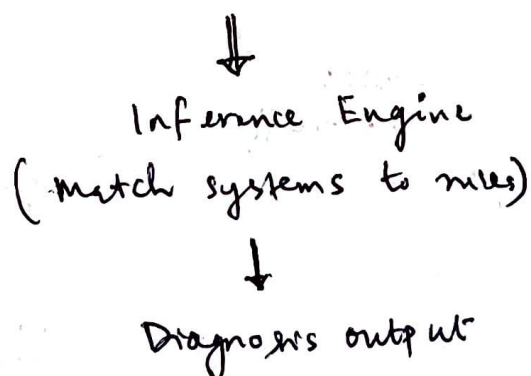 Inference Engine
(match systems to rules)
Diagnosis output